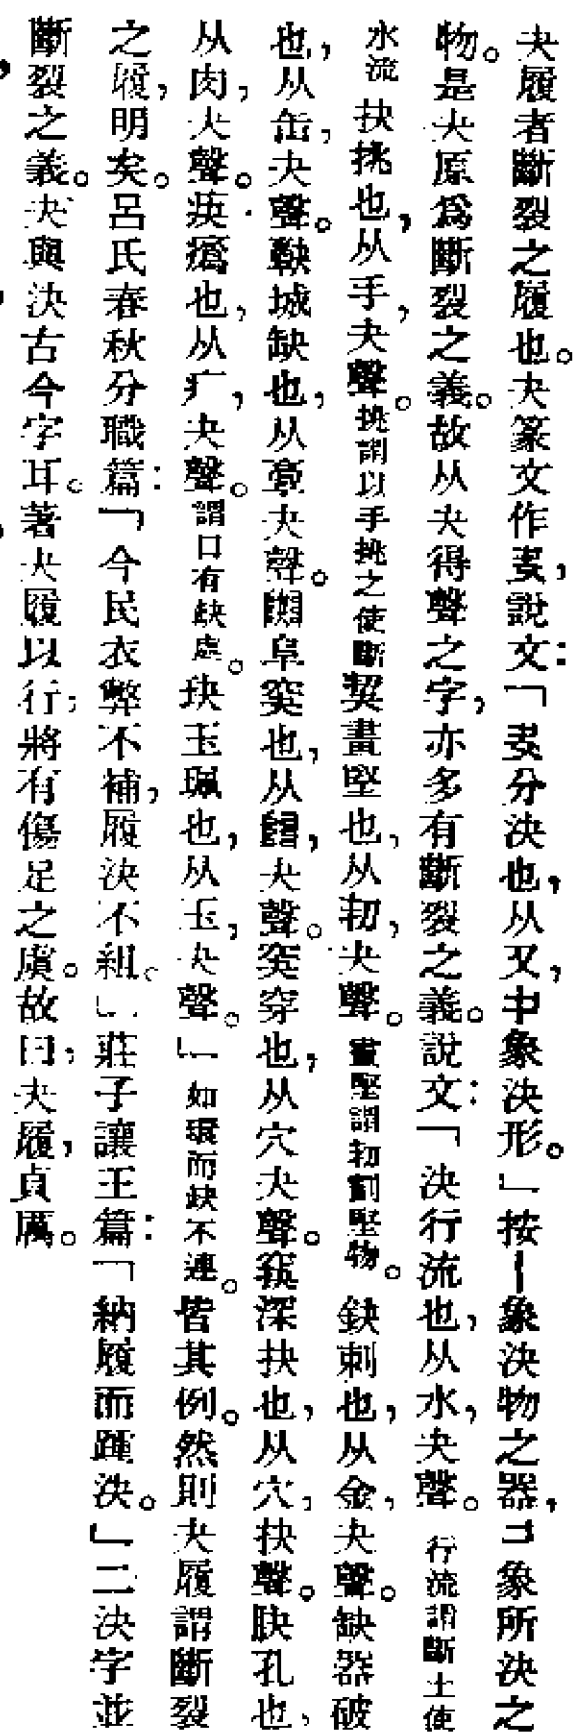 夬履者斷裂之履也。夬篆文作叏，說文：「叏分決也，从又，中象決形。」按丨象決物之器，コ象所決之
物。是夬原爲斷裂之義。故从夬得聲之字，亦多有斷裂之義。說文：「決行流也，从水，夬聲。行流謂斷土使
水流抉挑也，从手，夬聲。挑謂以手挑之使斷契畫堅也，从㓞，夬聲。畫堅謂㓞劃堅物。鈌刺也，从金，夬聲。缺器破
也，从缶，夬聲。𩏷城缺也，从𩫏夬聲。䦼阜突也，从𨸏，夬聲。突穿也，从穴夬聲。窫深抉也，从穴，抉聲。肤孔也，
从肉，夬聲。疾瘑也，从疒，夬聲。謂口有缺處。玦玉珮也，从玉，夬聲。」如環而缺不連。皆其例。然則夬履謂斷裂
之履，明矣。呂氏春秋分職篇：「今民衣弊不補，履決不組。」莊子讓王篇：「納履而踵決。」二決字並
斷裂之義。夬與決古今字耳。著夬履以行，將有傷足之虞。故曰，夬履，貞厲。